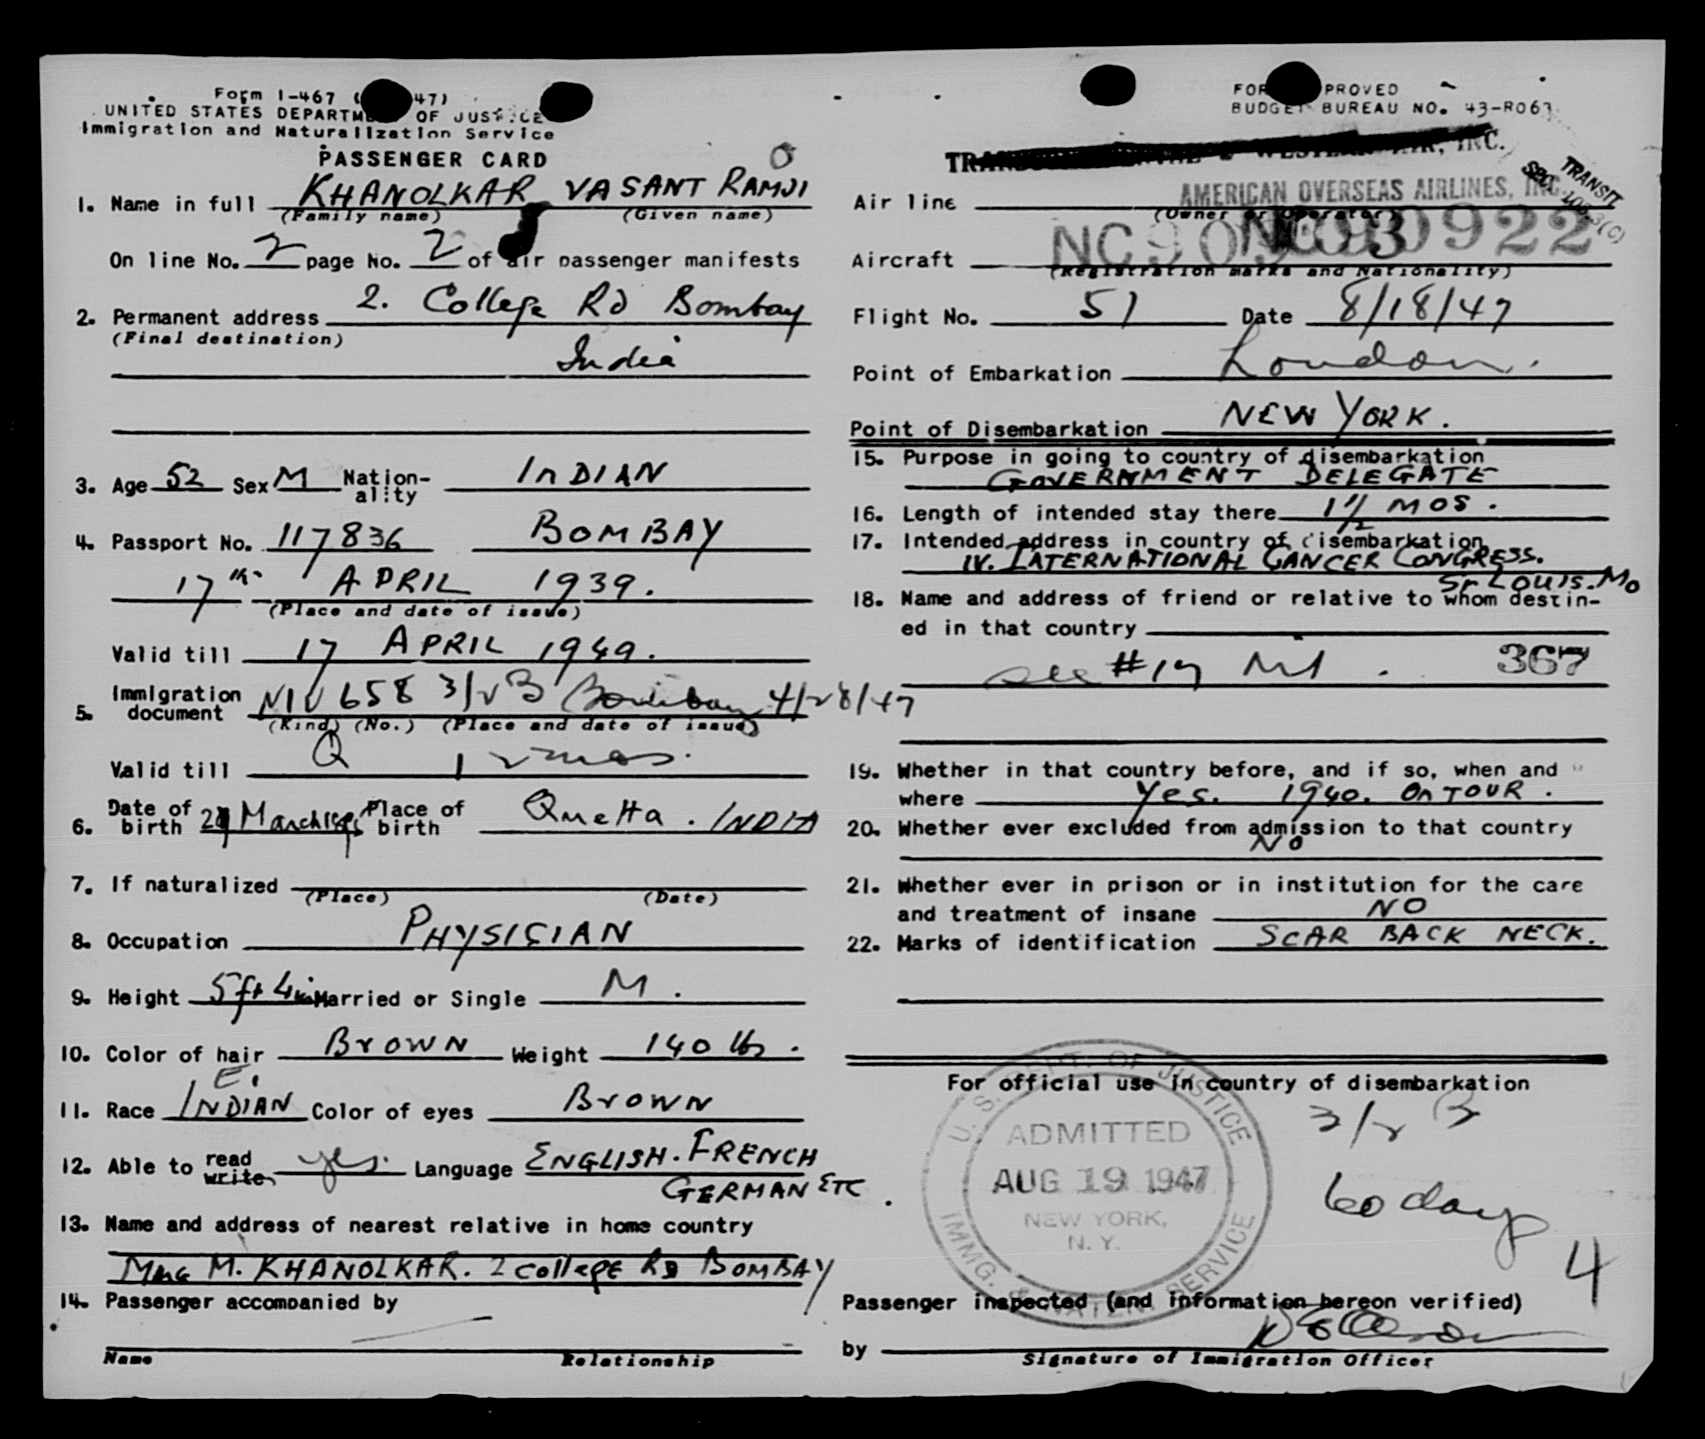 Form I-467 ( 47)
UNITED STATES DEPARTMENT OF JUSTICE
Immigration and Naturalization Service
PASSENGER CARD
1. Name in full KHANOLKAR VASANT RAMJI
(Family name) (Given name)
On line No. 2 page No. 2 of air passenger manifests
2. Permanent address 2. College Rd Bombay
(Final destination)
India
3. Age 52 Sex M Nation-ality INDIAN
4. Passport No. 117836 BOMBAY
17th APRIL 1939.
(Place and date of issue)
Valid till 17 APRIL 1949.
5. Immigration document NIV 658 3/2 B Bombay 4/28/47
(Kind) (No.) (Place and date of issue)
Valid till
6. Date of birth March Place of birth Quetta. INDIA
7. If naturalized
(Place) (Date)
8. Occupation PHYSICIAN
9. Height 5ft 4in Married or Single M.
10. Color of hair BROWN Weight 140 lbs.
E.
11. Race INDIAN Color of eyes BROWN
12. Able to read write yes. Language ENGLISH. FRENCH
GERMAN ETC.
13. Name and address of nearest relative in home country
M. KHANOLKAR. 2 COLLEGE RD BOMBAY
14. Passenger accompanied by
Name Relationship
FORM APPROVED
BUDGET BUREAU NO. 43-R063.
AIR, INC.
TRANSIT
SEC.
Air line AMERICAN OVERSEAS AIRLINES, INC.
(Owner or Operator)
Aircraft NC90922
(Registration marks and Nationality)
Flight No. 51 Date 8/18/47
Point of Embarkation London.
Point of Disembarkation NEW YORK.
15. Purpose in going to country of disembarkation
GOVERNMENT DELEGATE
16. Length of intended stay there 1 1/2 MOS.
17. Intended address in country of disembarkation
IV. INTERNATIONAL CANCER CONGRESS.
St LOUIS. Mo
18. Name and address of friend or relative to whom destin-
ed in that country
see #17 367
19. Whether in that country before, and if so, when and
where Yes. 1940. On TOUR.
20. Whether ever excluded from admission to that country
NO
21. Whether ever in prison or in institution for the care
and treatment of insane NO
22. Marks of identification SCAR BACK NECK.
For official use in country of disembarkation
3/2 B
60 days
4
U. S. DEPT. OF JUSTICE
ADMITTED
AUG 19 1947
NEW YORK,
N. Y.
IMMIG. & NATZN. SERVICE
Passenger inspected (and information hereon verified)
by
Signature of Immigration Officer